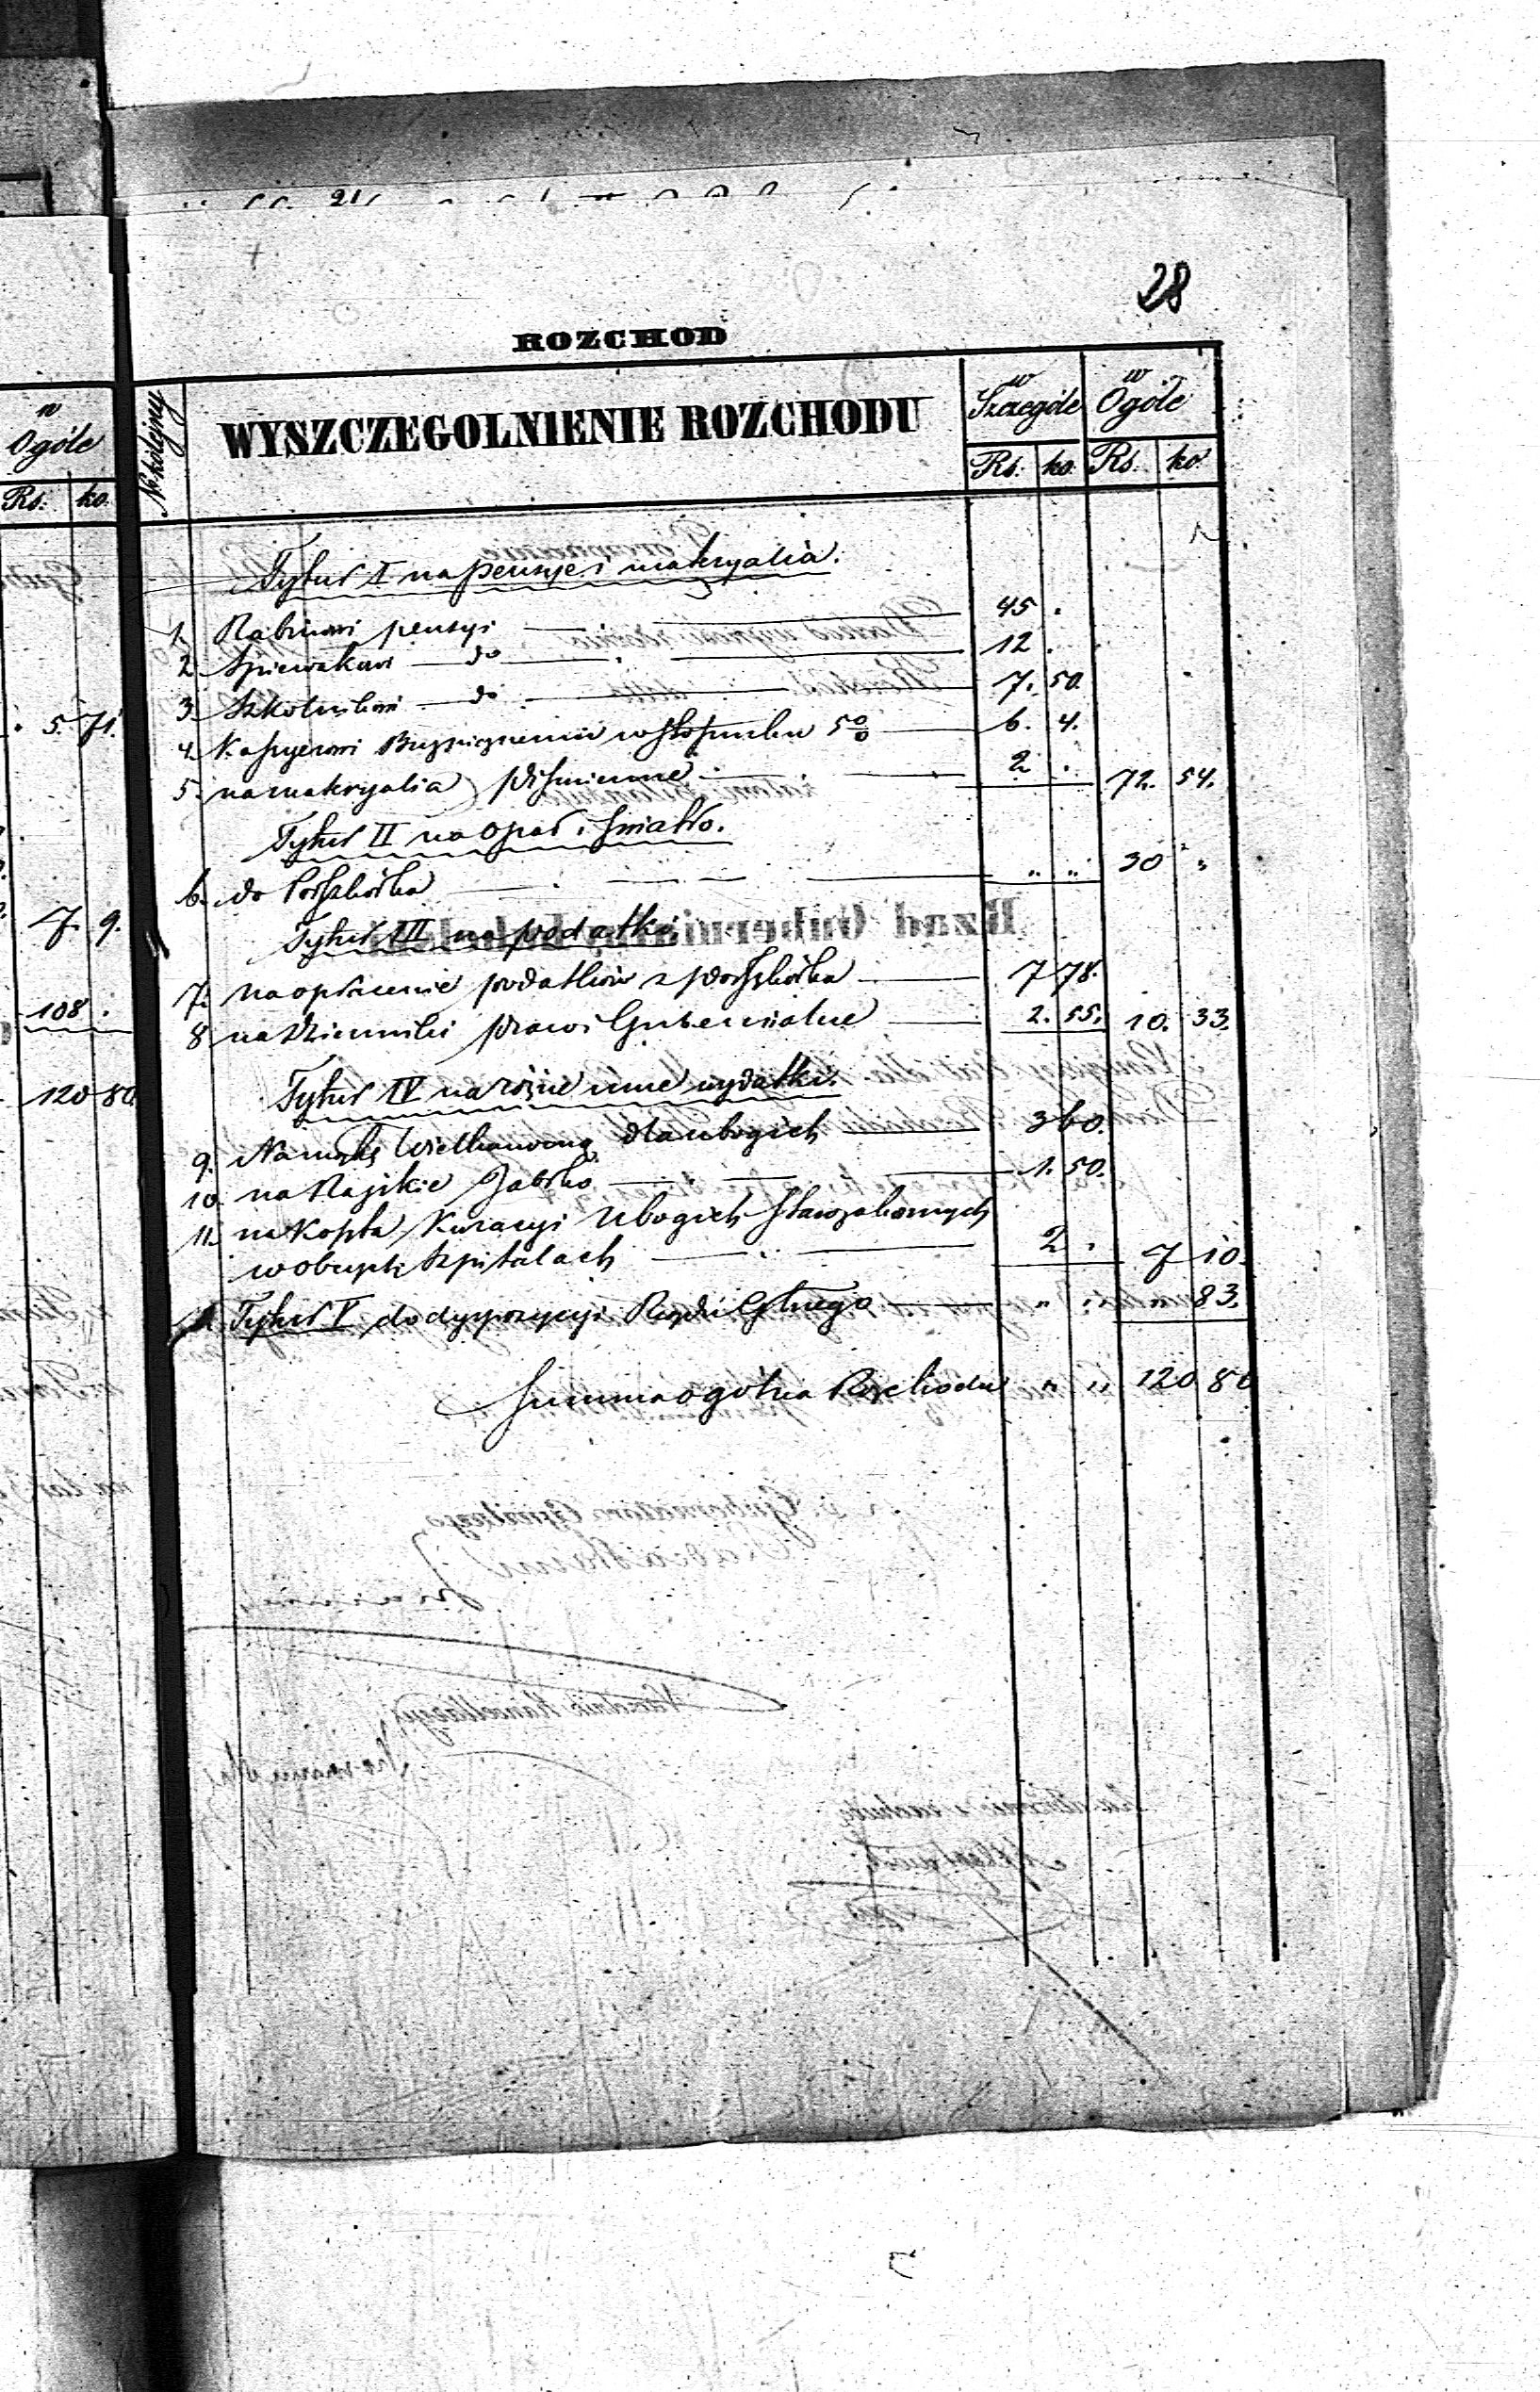 28
ROZCHOD
No kolejny
WYSZCZEGOLNIENIE ROZCHODU
w Szczególe
w Ogóle
Rs. ko. Rs. ko.
Tytuł I na pensye i materyalia.
1. Rabinowi pensyi 45 .
2. Spiewakowi do 12 .
3. Szkolnikowi do 7. 50.
4. Kasyerowi w stosunku 5% 6. 4.
5. na materyalia piśmienne 2 . 72. 54.
Tytuł II na opał i światło.
6. do " " 30 "
Tytuł III na podatki
7. na opłacenie podatków z 7 78.
8 na Dzienniki praw i Gubernialne 2. 55. 10. 33.
Tytuł IV na różne inne wydatki.
9. Na Wielkanocną dla ubogich 3 60.
10 na Rajskie Jabłko 1. 50.
11. na Koszta Kuracyi Ubogich Starozakonnych
w obcych Szpitalach 2 . 7 10.
Tytuł V do dyspozycyi Rządu Glnego " " " 83.
Summa ogólna Rozchodu " " 120 80
w
Ogóle
Rs. ko.
5. 71.
7. 9.
108 .
120 80